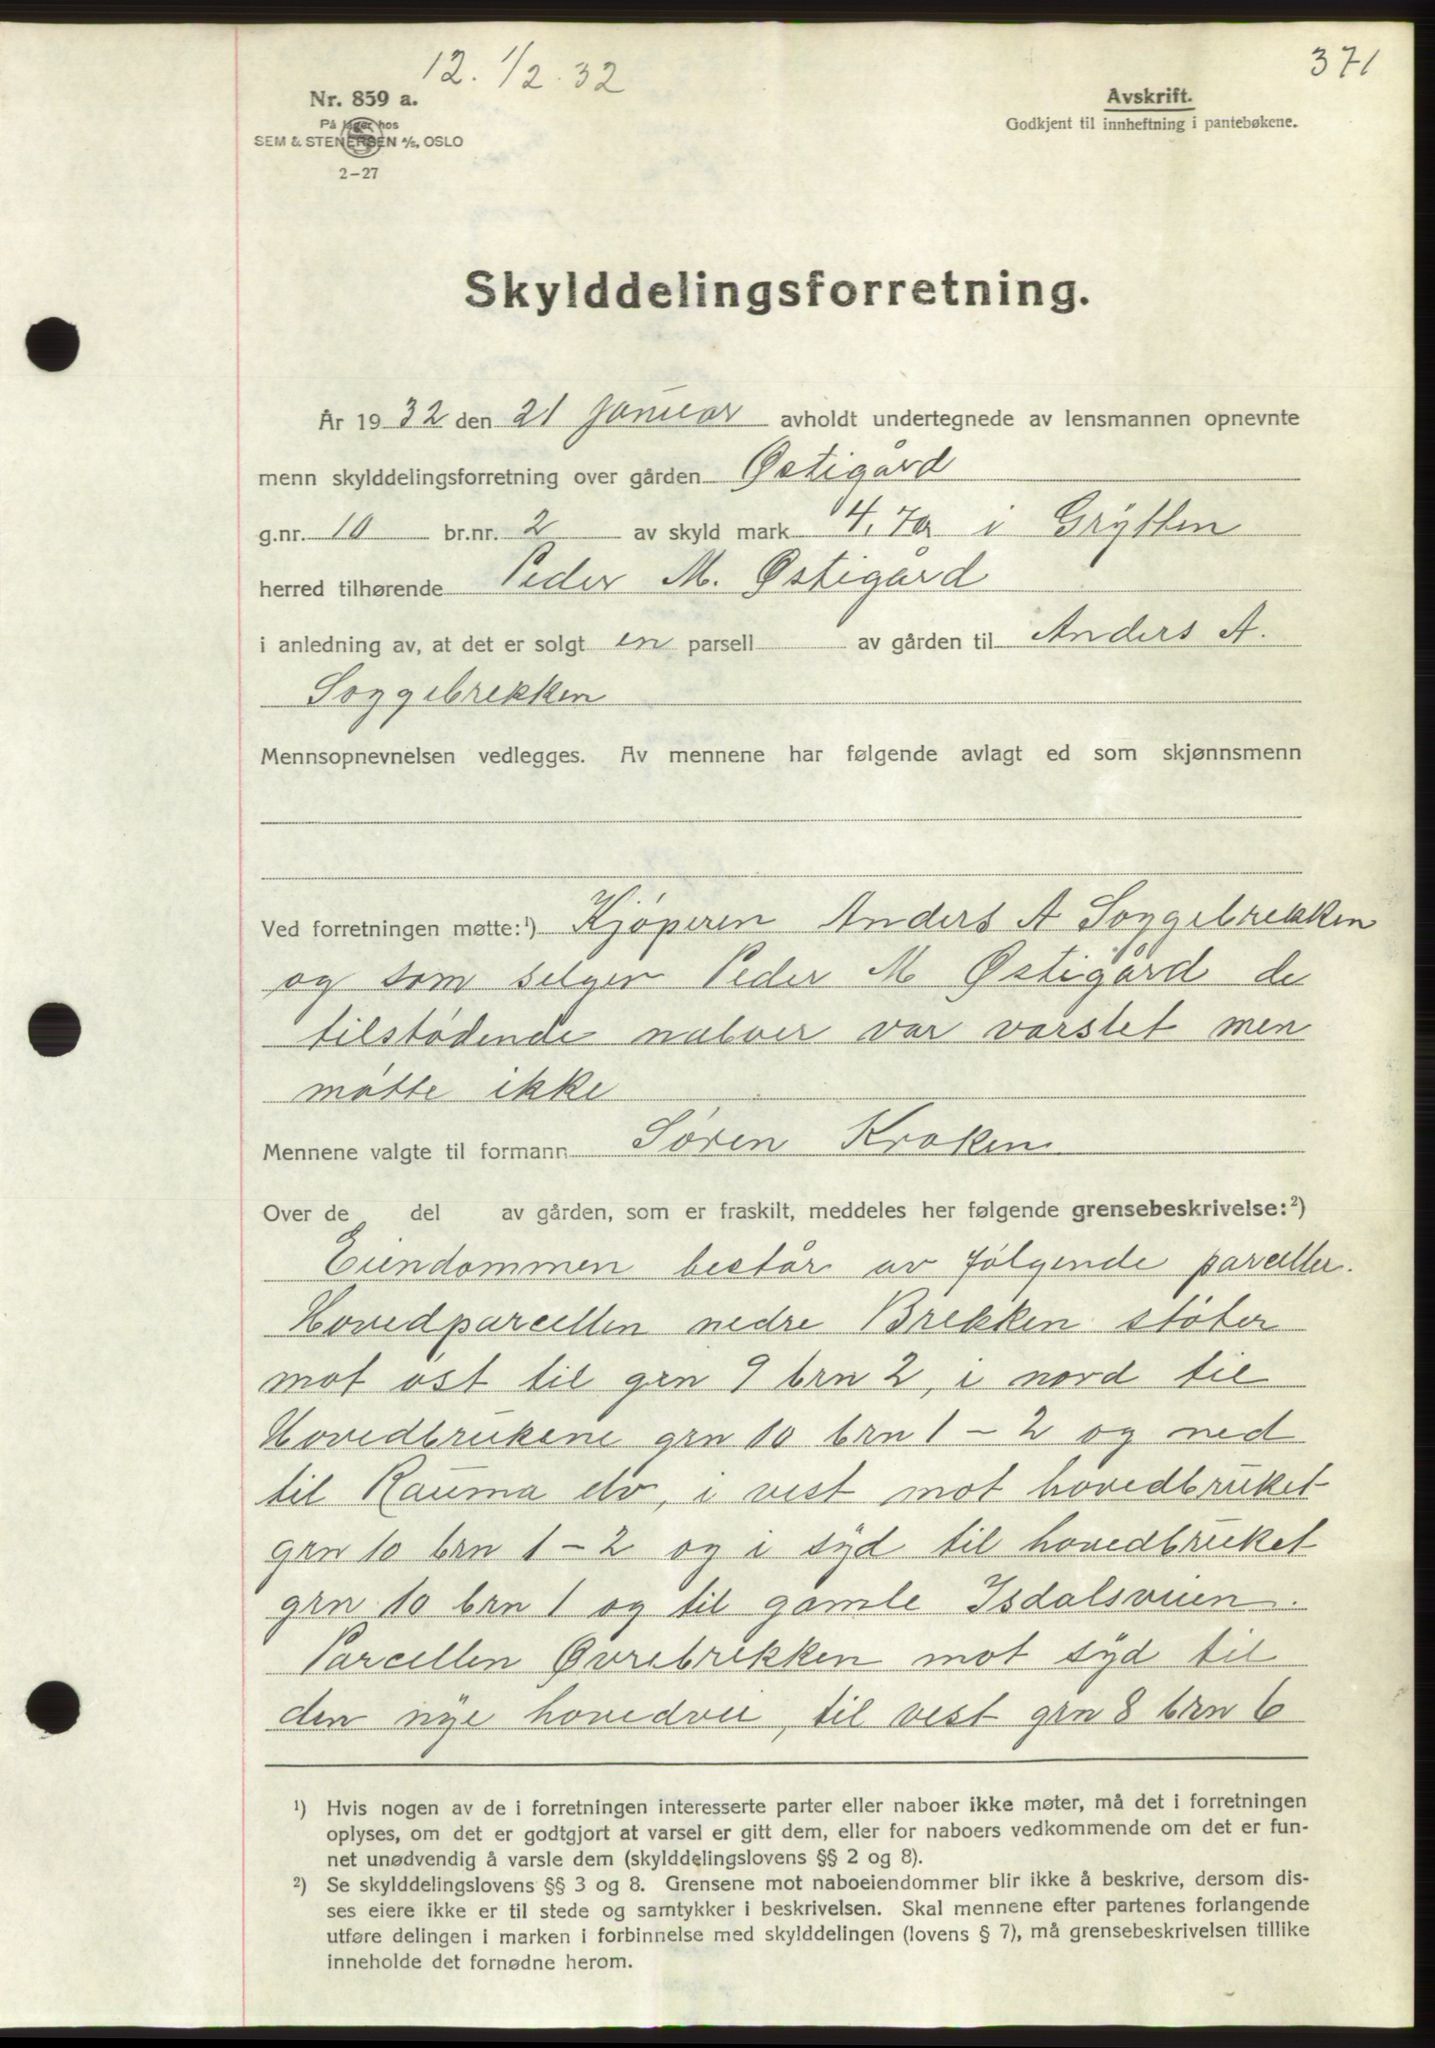 12. 1/2. 32
371
Nr. 859 a.
På lager hos
SEM & STENERSEN A/S, OSLO
2-27
Avskrift.
Godkjent til innheftning i pantebøkene.
Skylddelingsforretning.
År 1932 den 21 januar avholdt undertegnede av lensmannen opnevnte
menn skylddelingsforretning over gården Østigård
g.nr. 10 br.nr. 2 av skyld mark 4,70 i Grytten
herred tilhørende Peder M. Østigård
i anledning av, at det er solgt en parsell av gården til Anders A.
Soggebrekken
Mennsopnevnelsen vedlegges. Av mennene har følgende avlagt ed som skjønnsmenn
Ved forretningen møtte:¹) Kjöperen Anders A Soggebrekken
og som selger Peder M Østigård de
tilstødende naboer var varslet men
møtte ikke
Mennene valgte til formann Søren Kroken
Over de del av gården, som er fraskilt, meddeles her følgende grensebeskrivelse:²)
Eiendommen består av følgende parceller.
Hovedparcellen nedre Brekken støter
mot øst til grn 9 brn 2, i nord til
Hovedbrukene grn 10 brn 1 - 2 og ned
til Rauma elv, i vest mot hovedbruket
grn 10 brn 1 - 2 og i syd til hovedbruket
grn 10 brn 1 og til gamle Isdalsveien.
Parcellen Øvrebrekken mot syd til
den nye hovedvei, til vest grn 8 brn 6
¹) Hvis nogen av de i forretningen interesserte parter eller naboer ikke møter, må det i forretningen
oplyses, om det er godtgjort at varsel er gitt dem, eller for naboers vedkommende om det er fun-
net unødvendig å varsle dem (skylddelingslovens §§ 2 og 8).
²) Se skylddelingslovens §§ 3 og 8. Grensene mot naboeiendommer blir ikke å beskrive, dersom dis-
ses eiere ikke er til stede og samtykker i beskrivelsen. Skal mennene efter partenes forlangende
utføre delingen i marken i forbinnelse med skylddelingen (lovens § 7), må grensebeskrivelsen tillike
inneholde det fornødne herom.